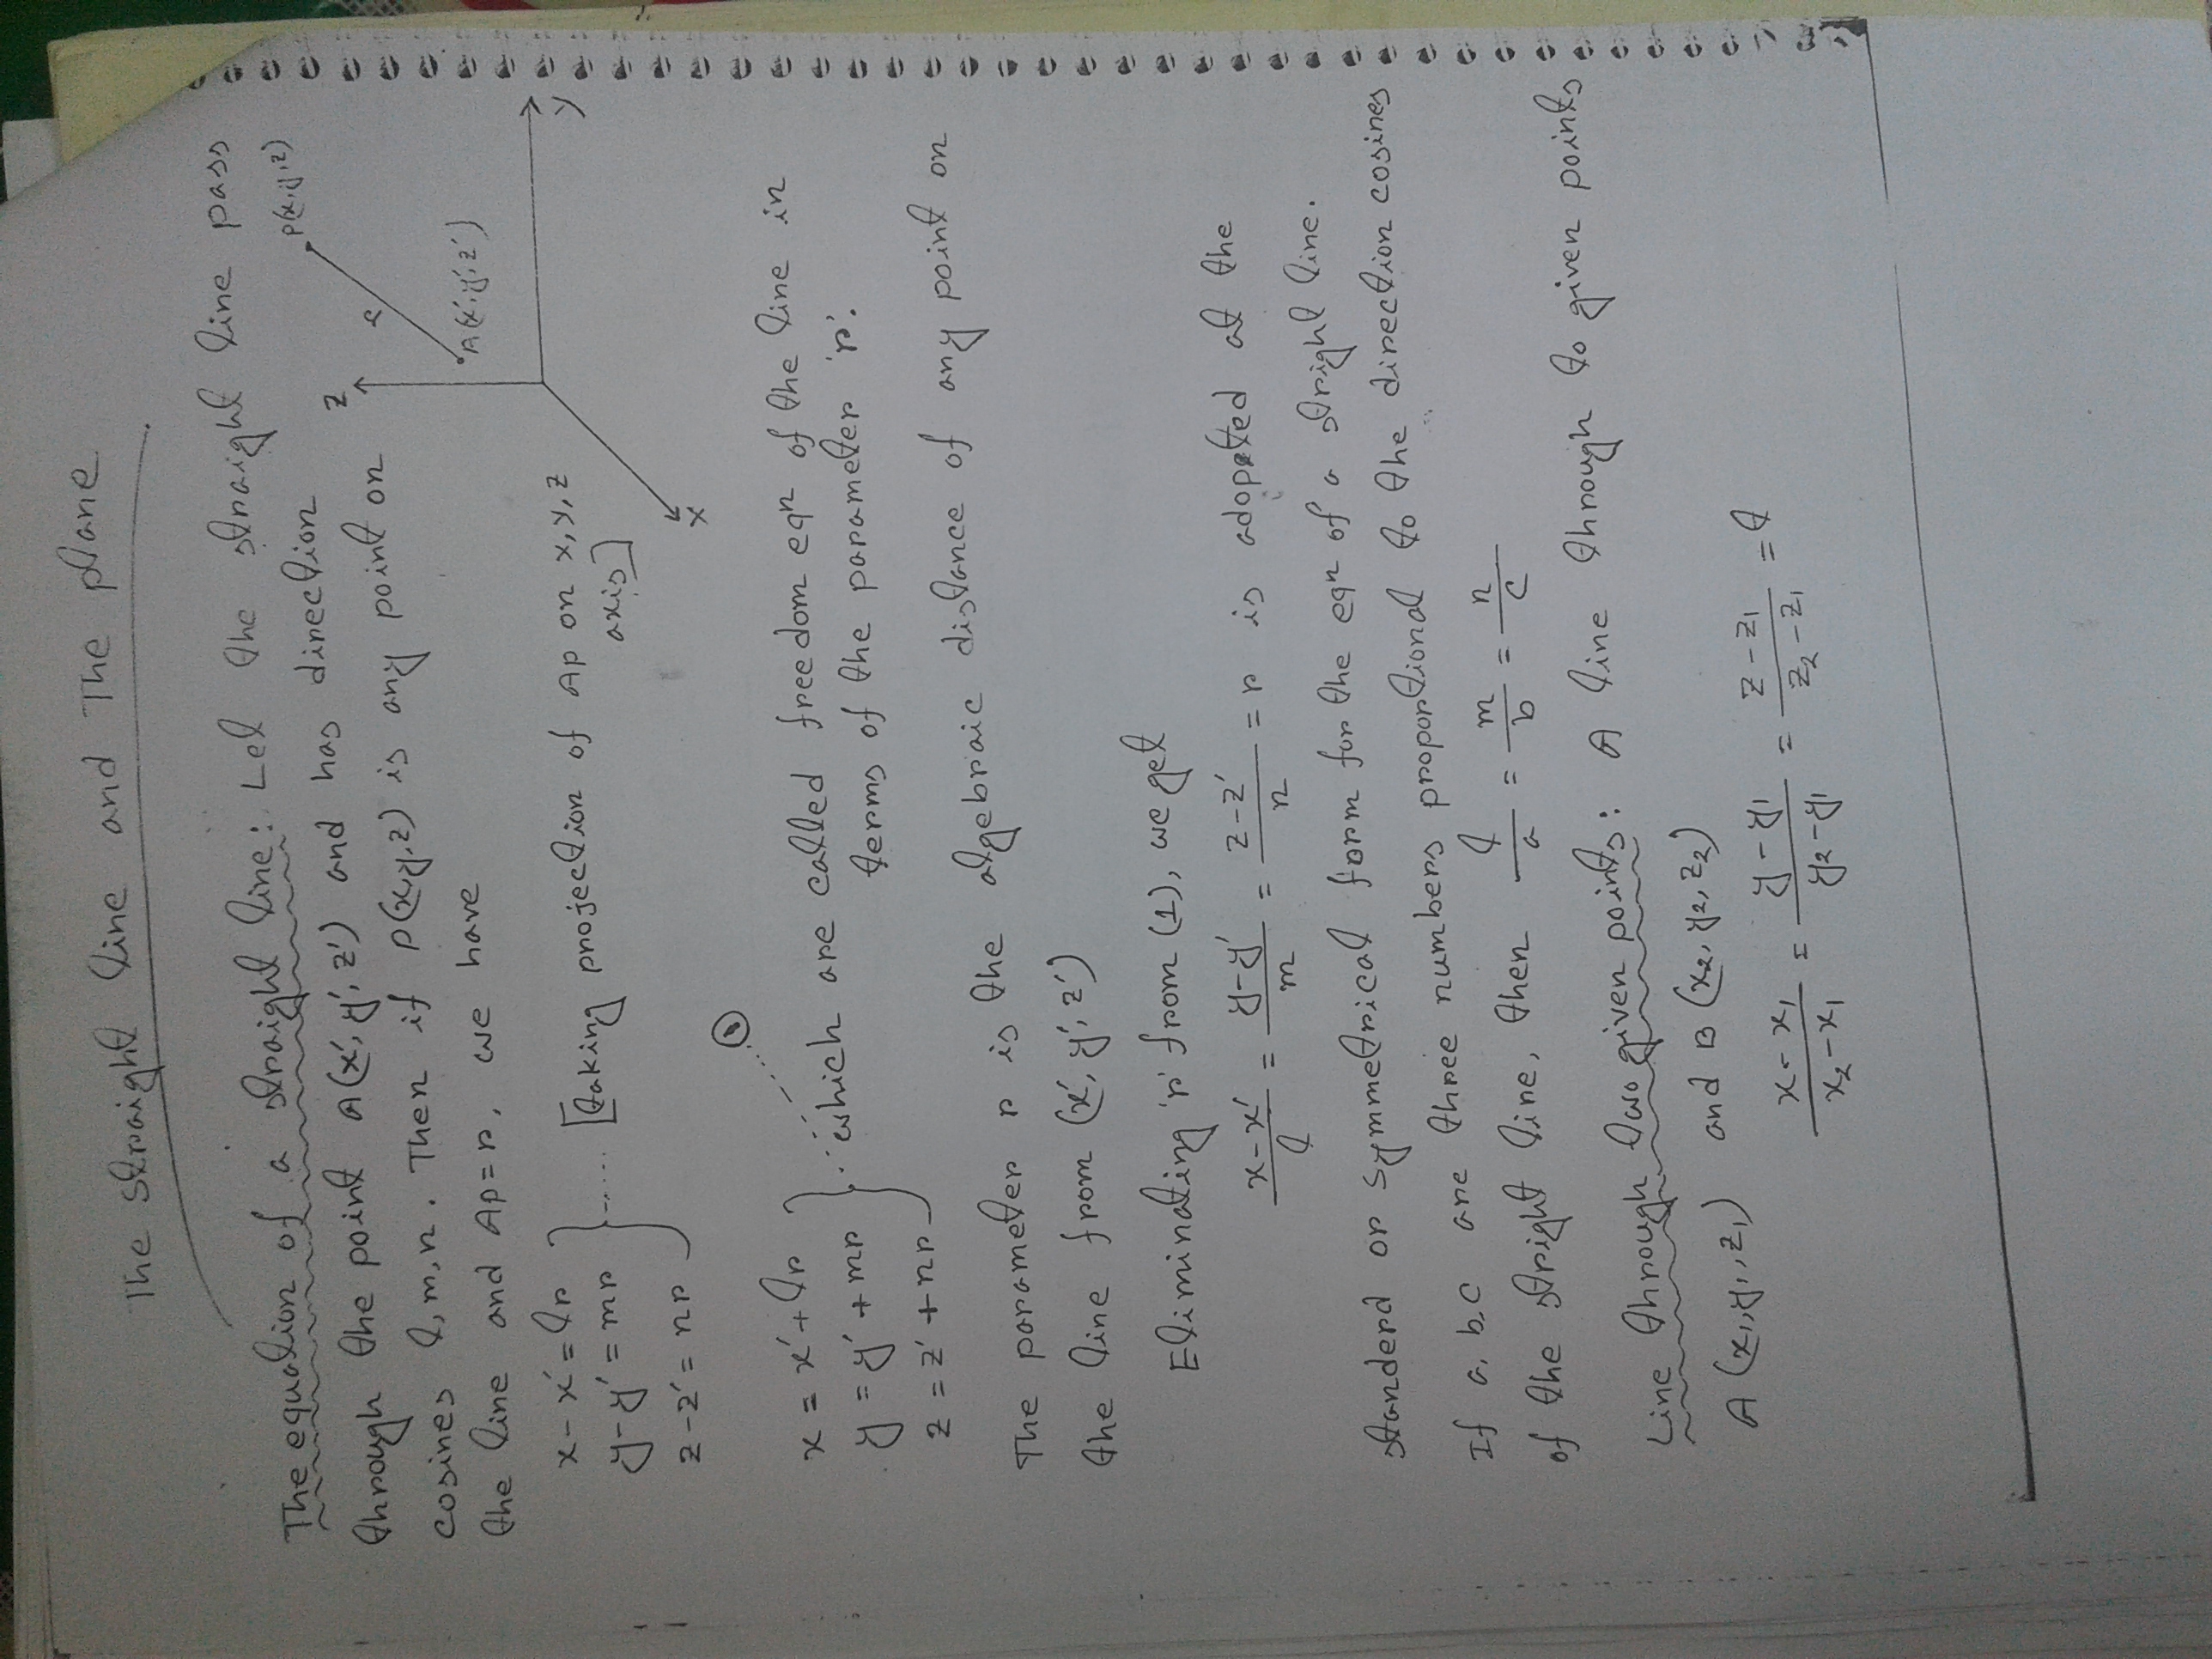 The straight line and The plane
The equation of a straight line: Let the straight line pass
through the point A(x', y', z') and has direction
cosines l, m, n. Then if P(x,y,z) is any point on
the line and AP=r, we have
x-x' = lr
y-y' = mr
z-z' = nr
..... [taking projection of AP on x, y, z
axis]
z
P(x,y,z)
r
A(x',y',z')
y
x
①
x = x'+lr
y = y'+mr
z = z'+nr
which are called freedom eqn of the line in
terms of the parameter 'r'.
The parameter r is the algebraic distance of any point on
the line from (x', y', z')
Eliminating 'r' from (1), we get
(x-x')/l = (y-y')/m = (z-z')/n = r is adopeted at the
standerd or symmetrical form for the eqn of a stright line.
If a, b, c are three numbers proportional to the direction cosines
of the stright line, then l/a = m/b = n/c
Line through two given points: A line through to given points
A (x₁, y₁, z₁) and B (x₂, y₂, z₂)
(x-x₁)/(x₂-x₁) = (y-y₁)/(y₂-y₁) = (z-z₁)/(z₂-z₁) = t